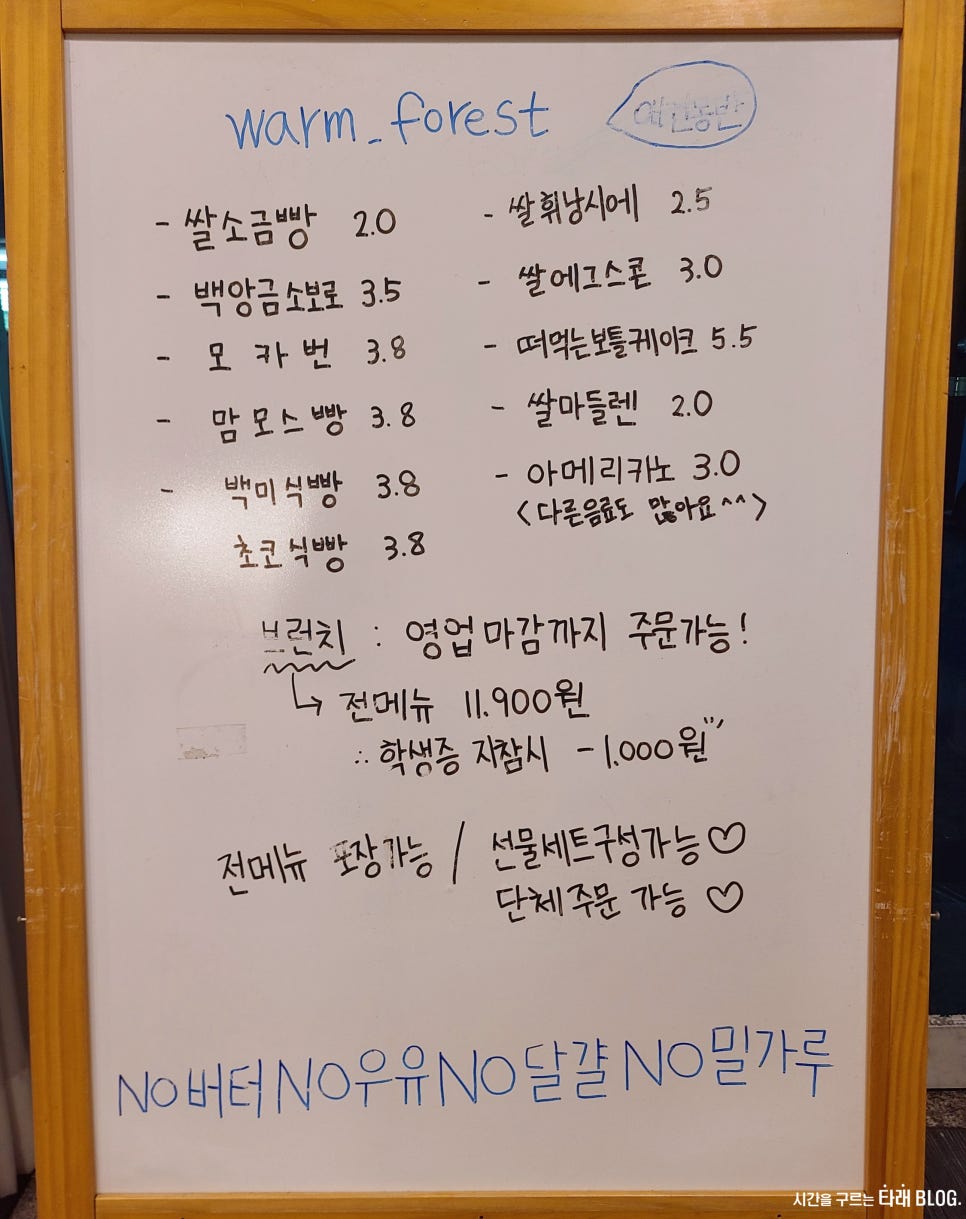 warm_forest
애견동반
- 쌀소금빵 2.0
- 백앙금소보로 3.5
- 모카번 3.8
- 맘모스빵 3.8
- 백미식빵 3.8
초코식빵 3.8
- 쌀휘낭시에 2.5
- 쌀에그스콘 3.0
- 떠먹는보틀케이크 5.5
- 쌀마들렌 2.0
- 아메리카노 3.0
<다른음료도 많아요^^>
브런치 : 영업마감까지 주문가능!
↳ 전메뉴 11.900원
∴ 학생증 지참시 -1.000원
전메뉴 포장가능 / 선물세트구성가능♡
단체주문 가능 ♡
NO버터 NO우유 NO달걀 NO밀가루
시간을 구르는 타래 BLOG.